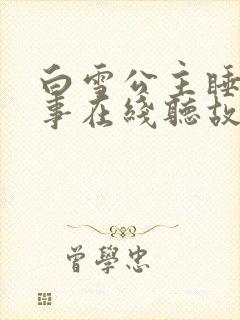 白雪公主睡
事在綫聽故
曾學忠